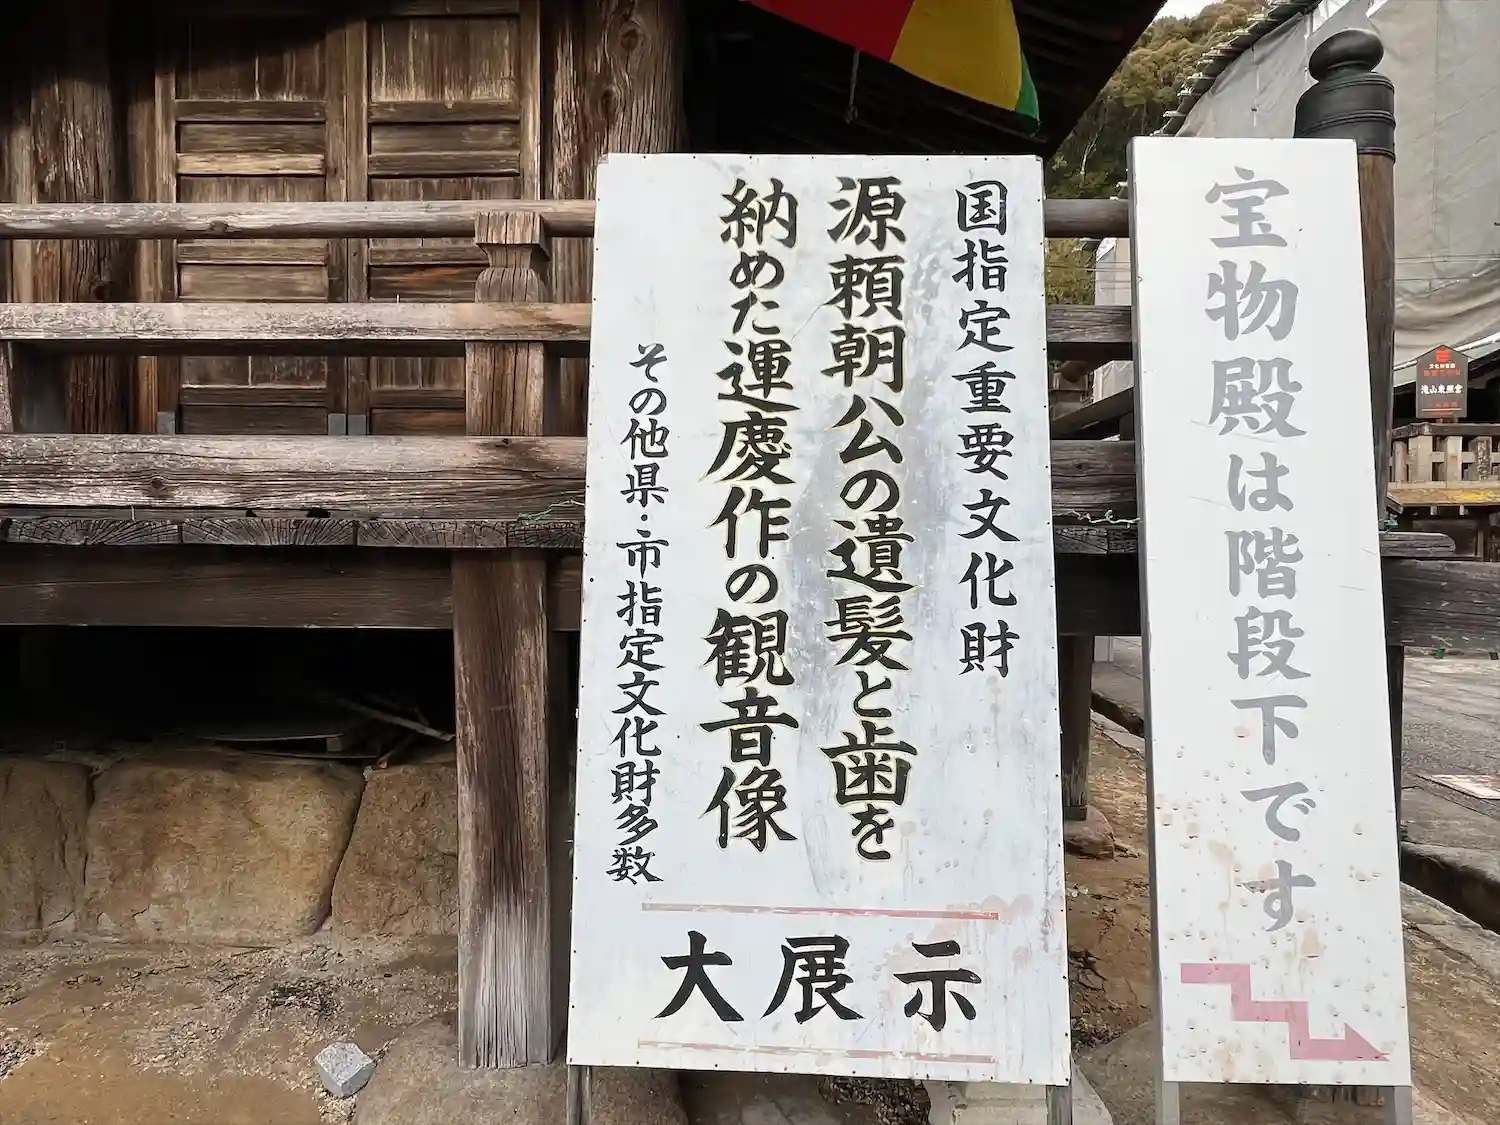 国指定重要文化財
源頼朝公の遺髪と歯を
納めた運慶作の観音像
その他県・市指定文化財多数
大展示
宝物殿は階段下です
滝山東照宮